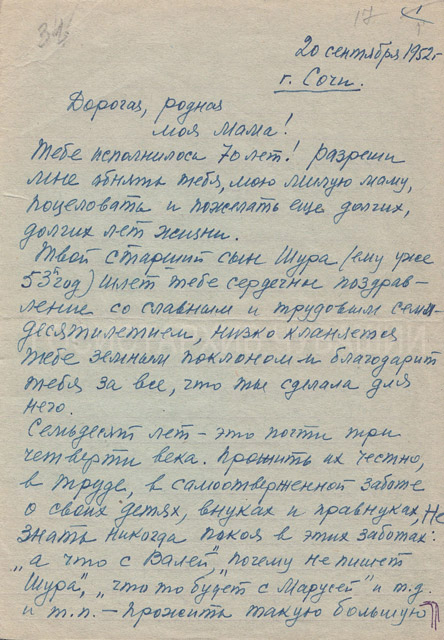 34
17
20 сентября 1952 г
г. Сочи.
Дорогая, родная
моя мама!
Тебе исполнилось 70 лет! Разреши
мне обнять тебя, мою милую маму,
поцеловать и пожелать еще долгих,
долгих лет жизни.
Твой старший сын Шура (ему уже
53й год) шлет тебе сердечные поздрав-
ление со славным и трудовым семи-
десятилетием, низко кланяется
тебе земным поклоном и благодарит
тебя за все, что ты сделала для
него.
Семьдесят лет - это почти три
четверти века. Прожить их честно,
в труде, в самоотверженной заботе
о своих детях, внуках и правнуках, Не
знать никогда покоя в этих заботах:
"а что с Валей", "почему не пишет
Шура", "что то будет с Марусей" и т.д.
и т.п. - прожить такую большую